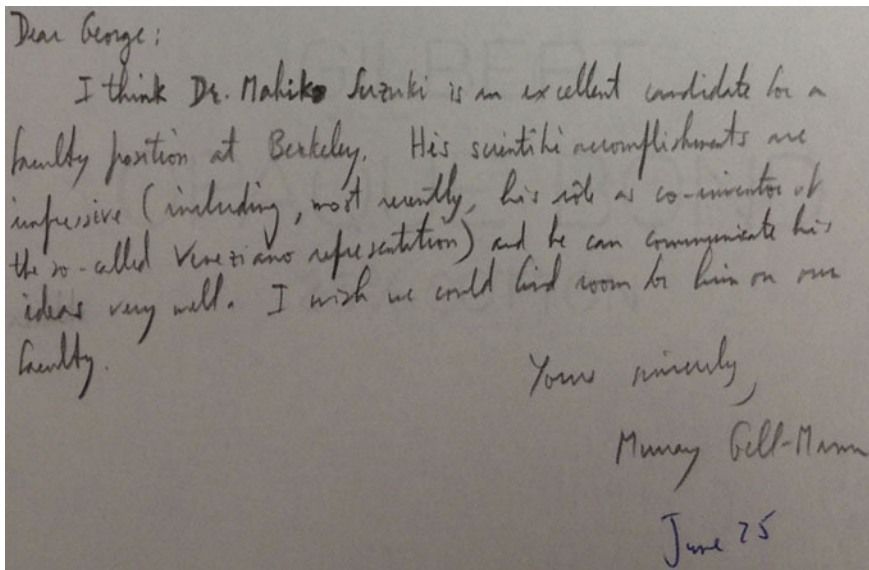 Dear George:
I think Dr. Mahiko Suzuki is an excellent candidate for a
faculty position at Berkeley. His scientific accomplishments are
impressive (including, most recently, his rôle as co-inventor of
the so-called Veneziano representation) and he can communicate his
ideas very well. I wish we could find room for him on our
faculty.
Yours sincerely,
Murray Gell-Mann
June 25